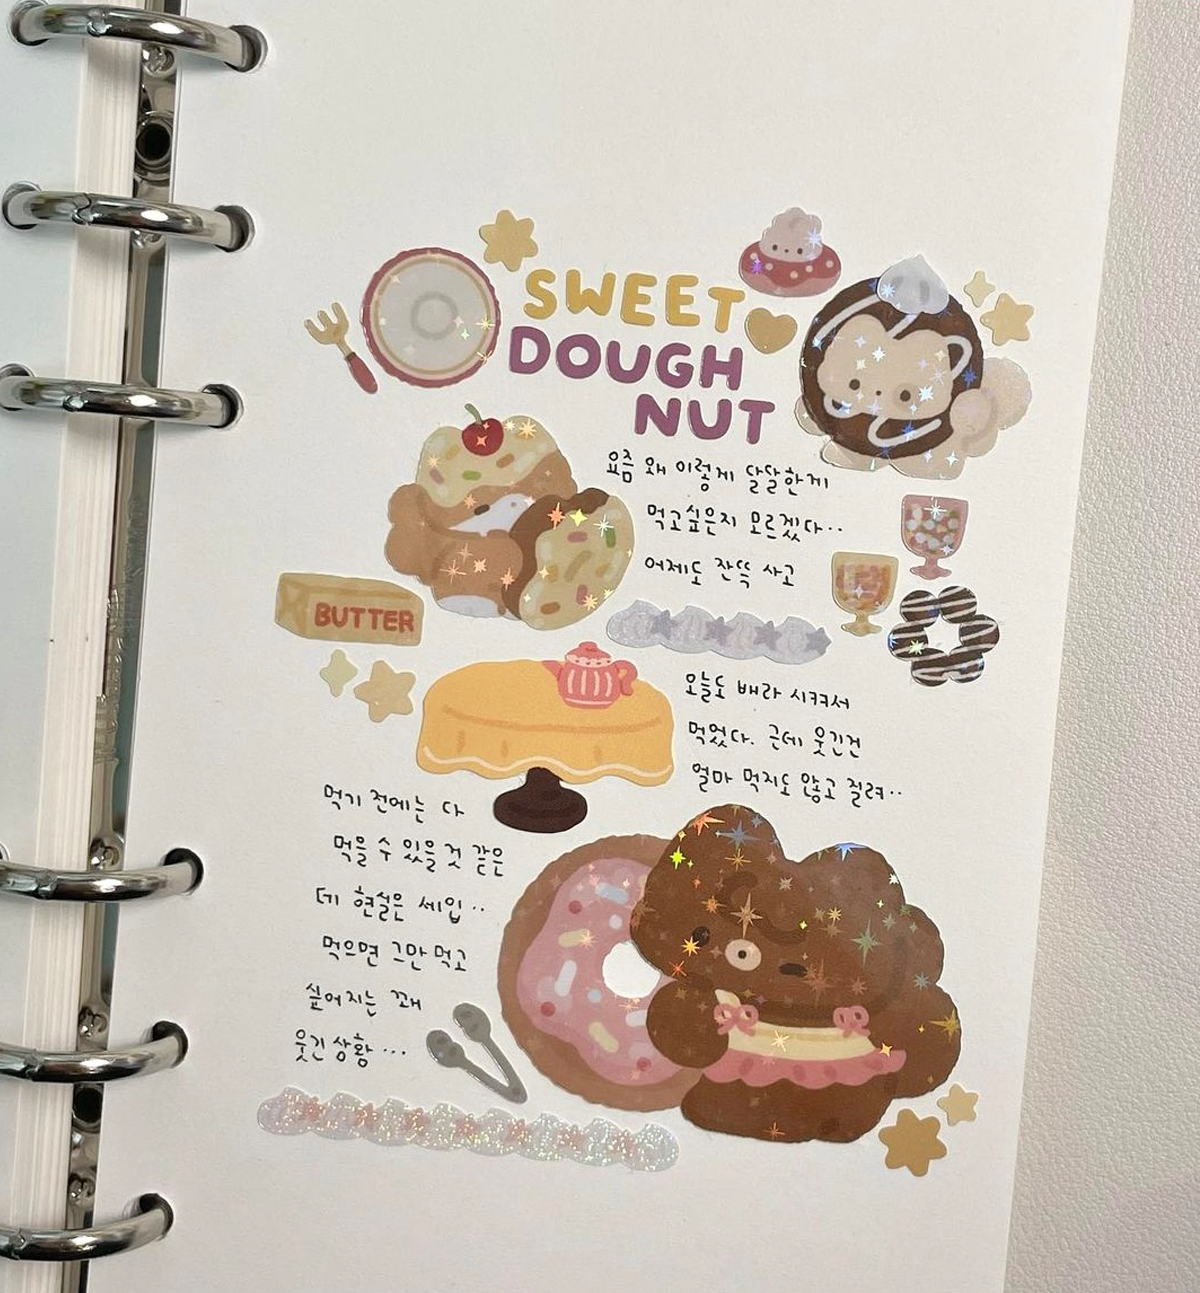 SWEET
DOUGH
NUT
요즘 왜 이렇게 달달한게
먹고싶은지 모르겠다..
어제도 잔뜩 사고
BUTTER
오늘도 배라 시켜서
먹었다. 근데 웃긴건
얼마 먹지도 않고 질려..
먹기 전에는 다
먹을 수 있을 것 같은
데 현실은 세입..
먹으면 그만 먹고
싶어지는 꽤
웃긴 상황...